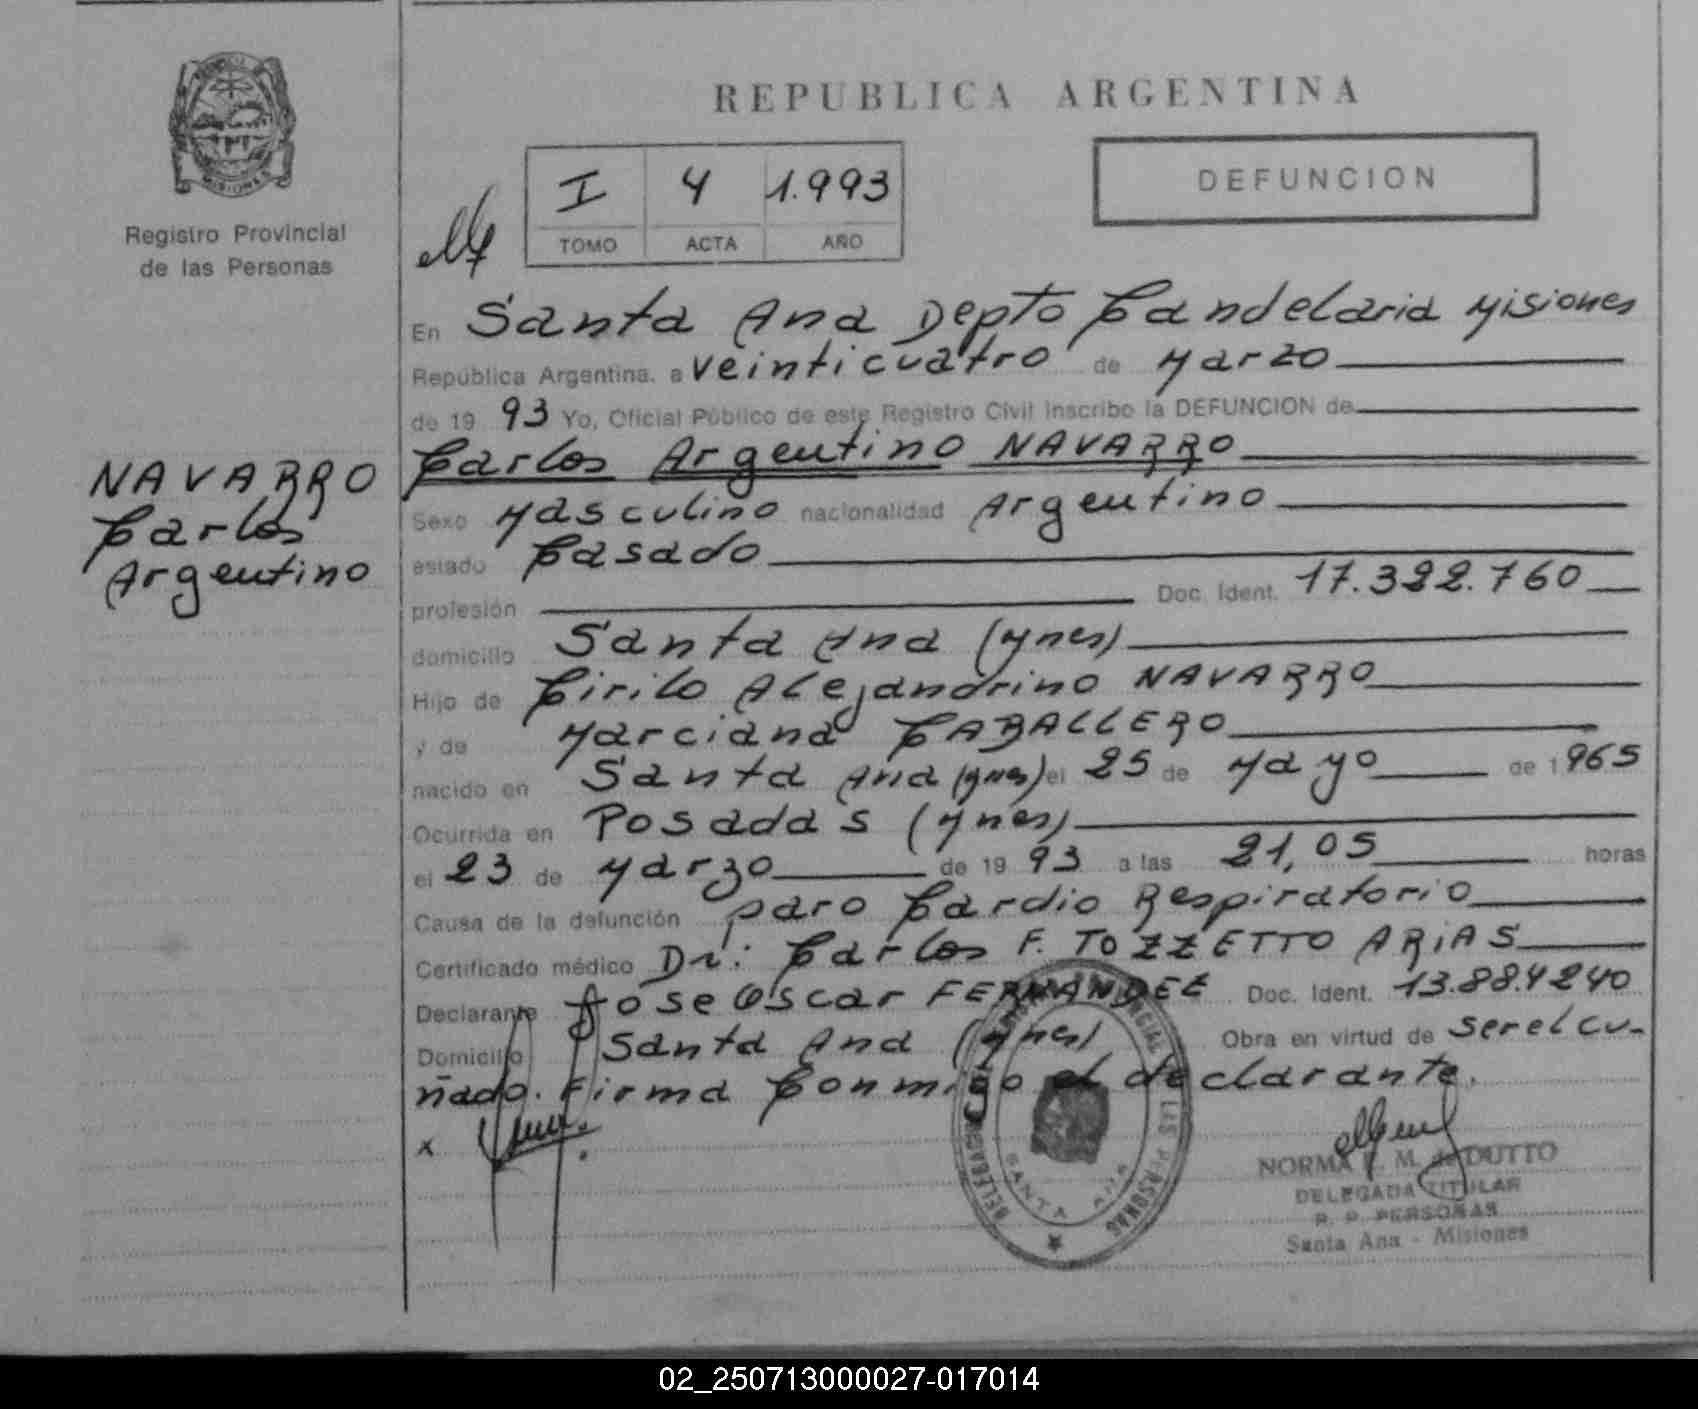 MISIONES
Registro Provincial
de las Personas
NAVARRO
Carlos
Argentino
REPUBLICA ARGENTINA
I 4 1.993
TOMO ACTA AÑO
DEFUNCION
En Santa Ana Depto Candelaria Misiones
República Argentina, a veinticuatro de Marzo
de 19 93 Yo, Oficial Público de este Registro Civil inscribo la DEFUNCION de
Carlos Argentino NAVARRO
Sexo Masculino nacionalidad Argentino
estado Casado
profesión Doc. Ident. 17.322.760
domicilio Santa Ana (Mnes)
Hijo de Cirilo Alejandrino NAVARRO
y de Marciana CABALLERO
nacido en Santa Ana (Mnes) el 25 de Mayo de 1965
Ocurrida en Posadas (Mnes)
el 23 de Marzo de 19 93 a las 21,05 horas
Causa de la defunción paro Cardio Respiratorio
Certificado médico Dr: Carlos F. TOZZETTO ARIAS
Declarante Jose Oscar FERNANDEZ Doc. Ident. 13.884240
Domicilio Santa Ana (Mnes) Obra en virtud de ser el cu-
ñado. Firma Conmigo el declarante.
x
SANTA ANA
NORMA M. de DUTTO
DELEGADA TITULAR
R. P. PERSONAS
Santa Ana - Misiones
02_250713000027-017014